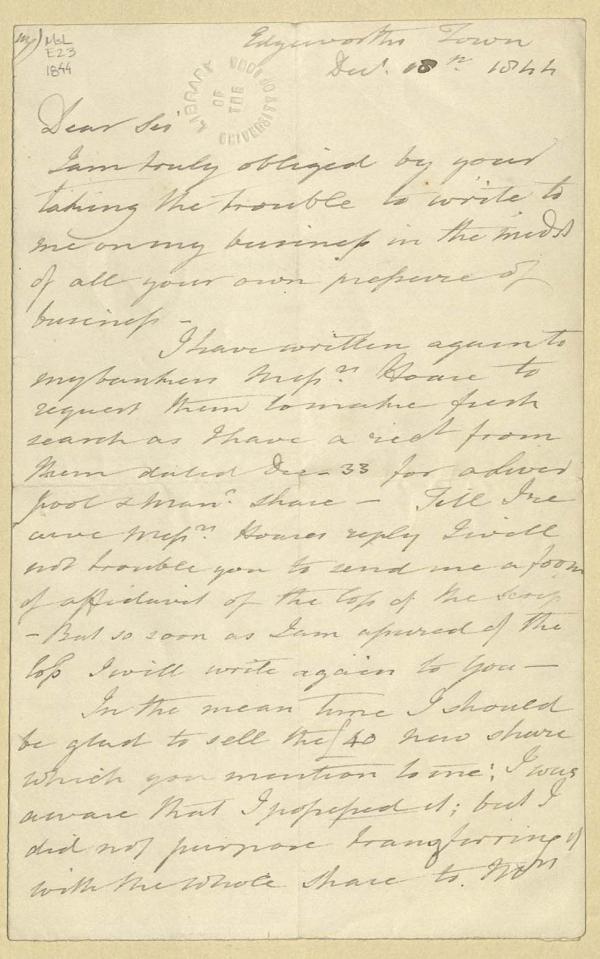 MsL
E23
1844
LIBRARY OF THE UNIVERSITY
Edgeworths Town
Decr. 18th 1844
Dear Sir
I am truly obliged by your
taking the trouble to write to
me on my business in the midst
of all your own pressure of
business –
I have written again to
my bankers Messrs. Hoare to
request them to make fresh
search as I have a rect from
them dated Dec – 33 for a Liver
pool & Manr. share – Till I re
ceive Messrs. Hoares reply I will
not trouble you to send me a form
of affidavit of the loss of the scrip
– But so soon as I am assured of the
loss I will write again to you –
In the mean time I should
be glad to sell the £40 new share
which you mention to me; I was
aware that I possessed it; but I
did not purpose transferring it
with the whole share to